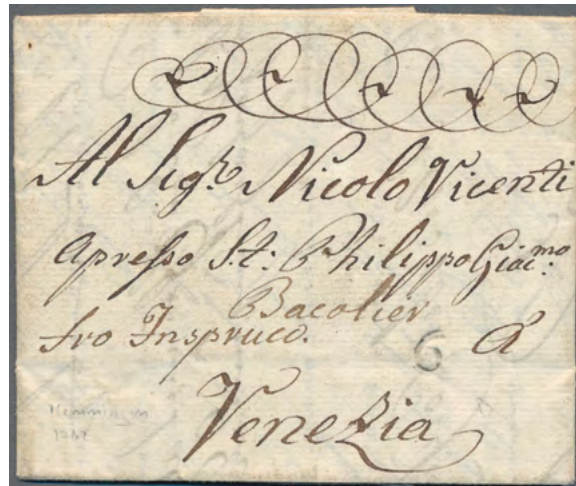 Al Sigr. Nicolo Vicenti
Apresso St: Philippo Giac.mo
Bacolier
fro Inspruco. 6 â
Venezia